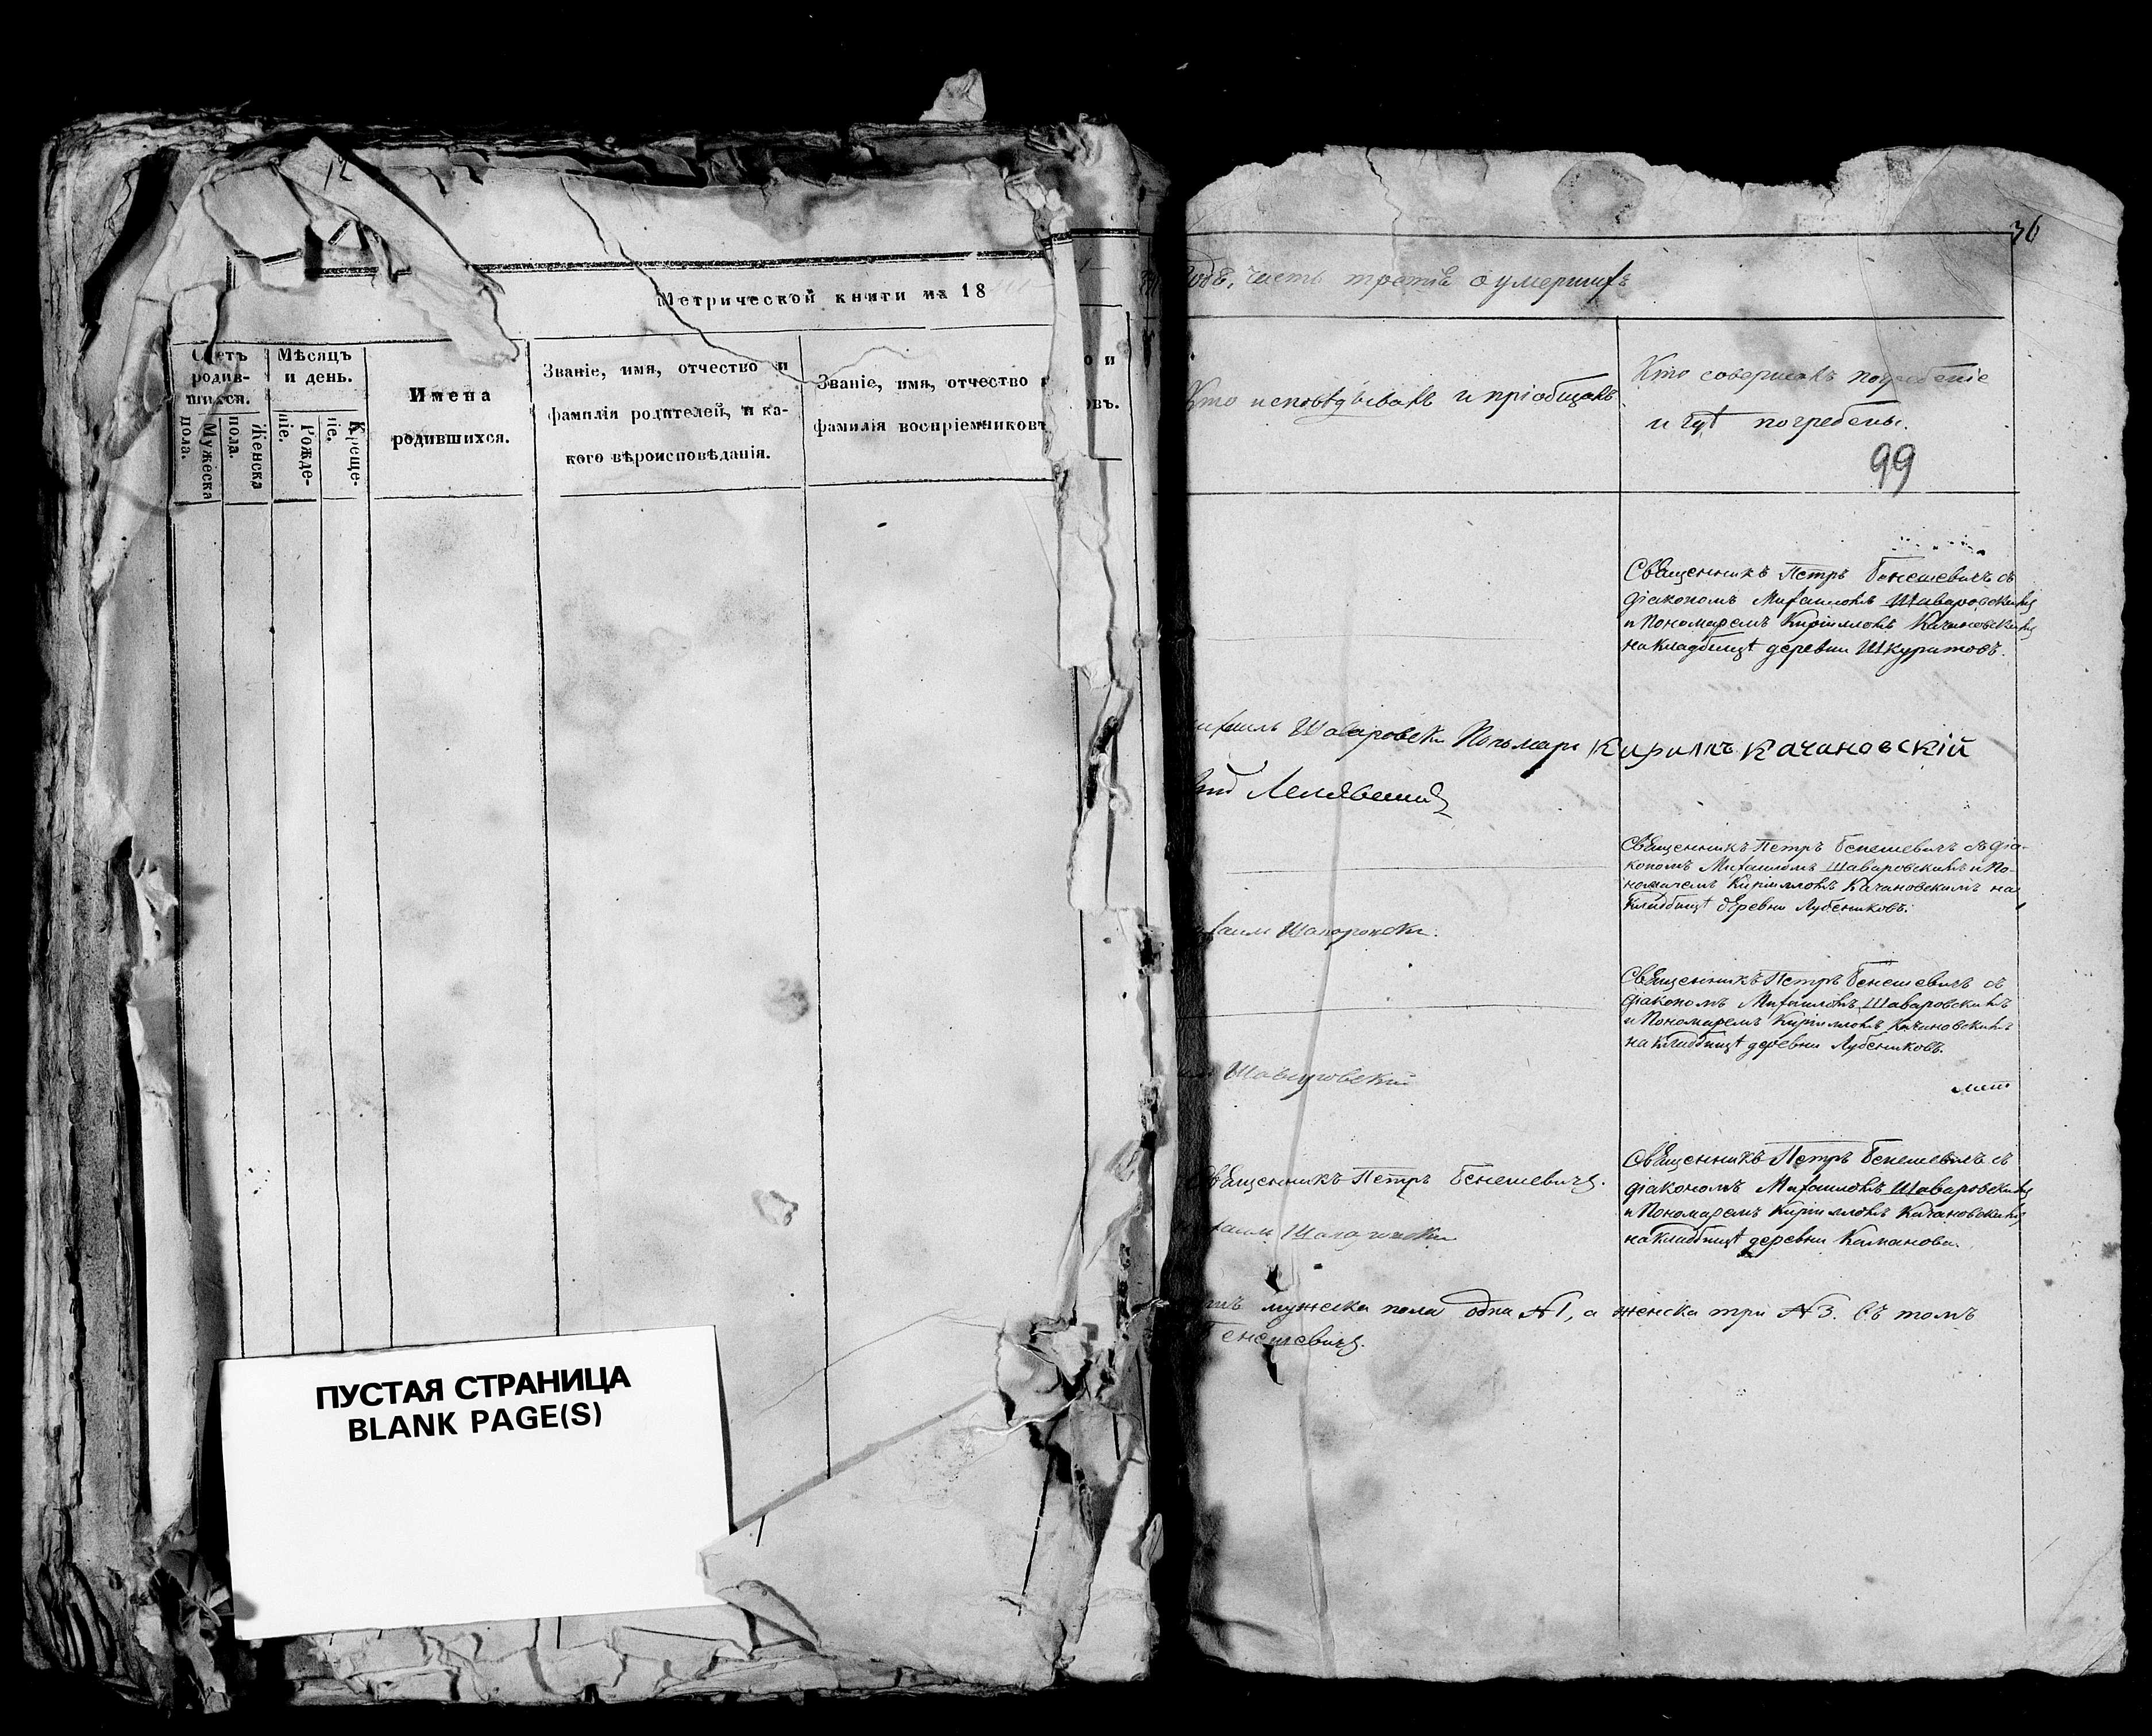 12
Метрической книги на 18
Счетъ родив-
шихся.
Мужеска пола.
Женска пола.
Мѣсяцъ и день.
Рожде-
ніе.
Креще-
ніе.
Имена
родившихся.
Званіе, имя, отчество и
фамилія родителей, и ка-
кого вѣроисповѣданія.
Званіе, имя, отчество
фамилія воспріемниковъ
о и
овъ.
ПУСТАЯ СТРАНИЦА
BLANK PAGE(S)
36
годѣ, часть третія о умершихъ
Кто исповѣдывалъ и пріобщалъ
Кто совершалъ погребеніе
и гдѣ погребены.
99
Священникъ Петръ Бенешевичъ съ
діакономъ Михаиломъ Шаваровскимъ
и Пономаремъ Кирилломъ Качановскимъ
на кладбищѣ деревни Шкуратовъ.
Шаваровски Пономарь Кириллъ Качановскій
Священникъ Петръ Бенешевичъ съ діа-
кономъ Михаиломъ Шаваровскимъ и По-
номаремъ Кирилломъ Качановскимъ на
кладбищѣ деревни Лубениковъ.
Шаваровски.
Священникъ Петръ Бенешевичъ съ
діакономъ Михаиломъ Шаваровскимъ
и Пономаремъ Кирилломъ Качановскимъ
на кладбищѣ деревни Лубениковъ.
Шаваровскій
Священникъ Петръ Бенешевичъ.
Священникъ Петръ Бенешевичъ съ
діакономъ Михаиломъ Шаваровскимъ
и Пономаремъ Кирилломъ Качановскимъ
на кладбищѣ деревни Каманова.
мужеска пола одна № 1, а женска три № 3. Въ томъ
Бенешевичъ.